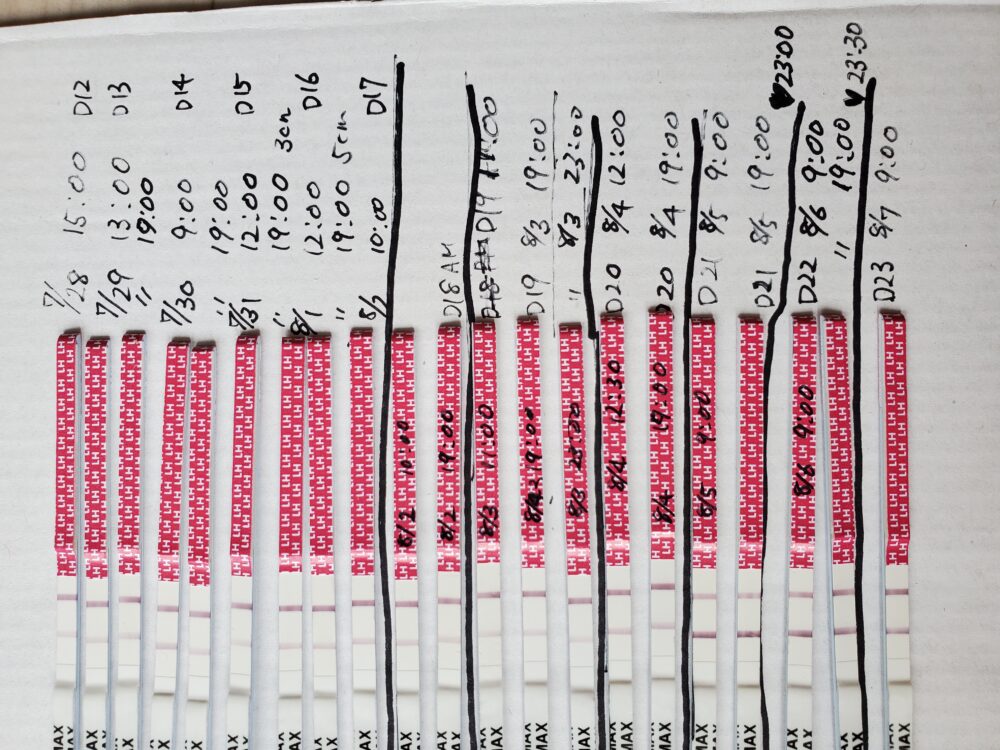 7/28 15:00 D12
7/29 13:00 D13
〃 19:00
7/30 9:00 D14
〃 19:00
7/31 12:00 D15
〃 19:00 3cm
8/1 12:00 D16
〃 19:00 5cm
8/2 10:00 D17
MAX LH 8/2 10:00
MAX LH 8/2 19:00 D18 AM
MAX LH 8/3 11:00 D19
MAX LH 19:00 D19 8/3 19:00
MAX LH 8/3 23:00 〃 8/3 23:00
MAX LH 8/4 12:30 D20 8/4 12:00
MAX LH 8/4 19:00 D20 8/4 19:00
MAX LH 8/5 9:00 D21 8/5 9:00
MAX LH D21 8/5 19:00
♥23:00
MAX LH 8/6 9:00 D22 8/6 9:00
MAX LH 〃 19:00
♥23:30
MAX LH D23 8/7 9:00